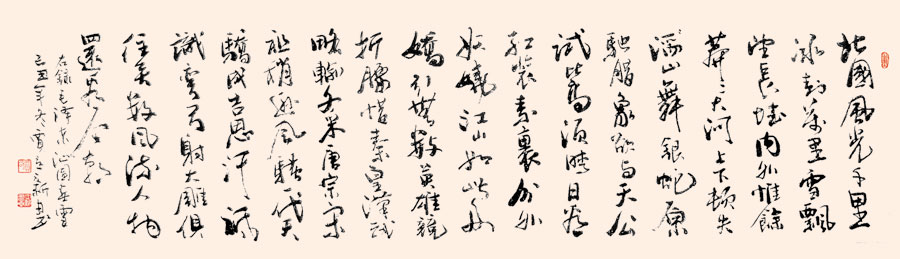 北國風光千里
冰封萬里雪飄
望長城內外惟餘
莽〻大河上下頓失
滔〻山舞銀蛇原
馳臘象欲與天公
試比高須晴日看
紅裝素裹分外
妖嬈江山如此多
嬌引無數英雄競
折腰惜秦皇漢武
略輸文采唐宗宋
祖稍遜風騷一代天
驕成吉思汗
識彎弓射大雕俱
往矣數風流人物
還看今朝
右錄毛澤東沁園春雪
己丑年冬